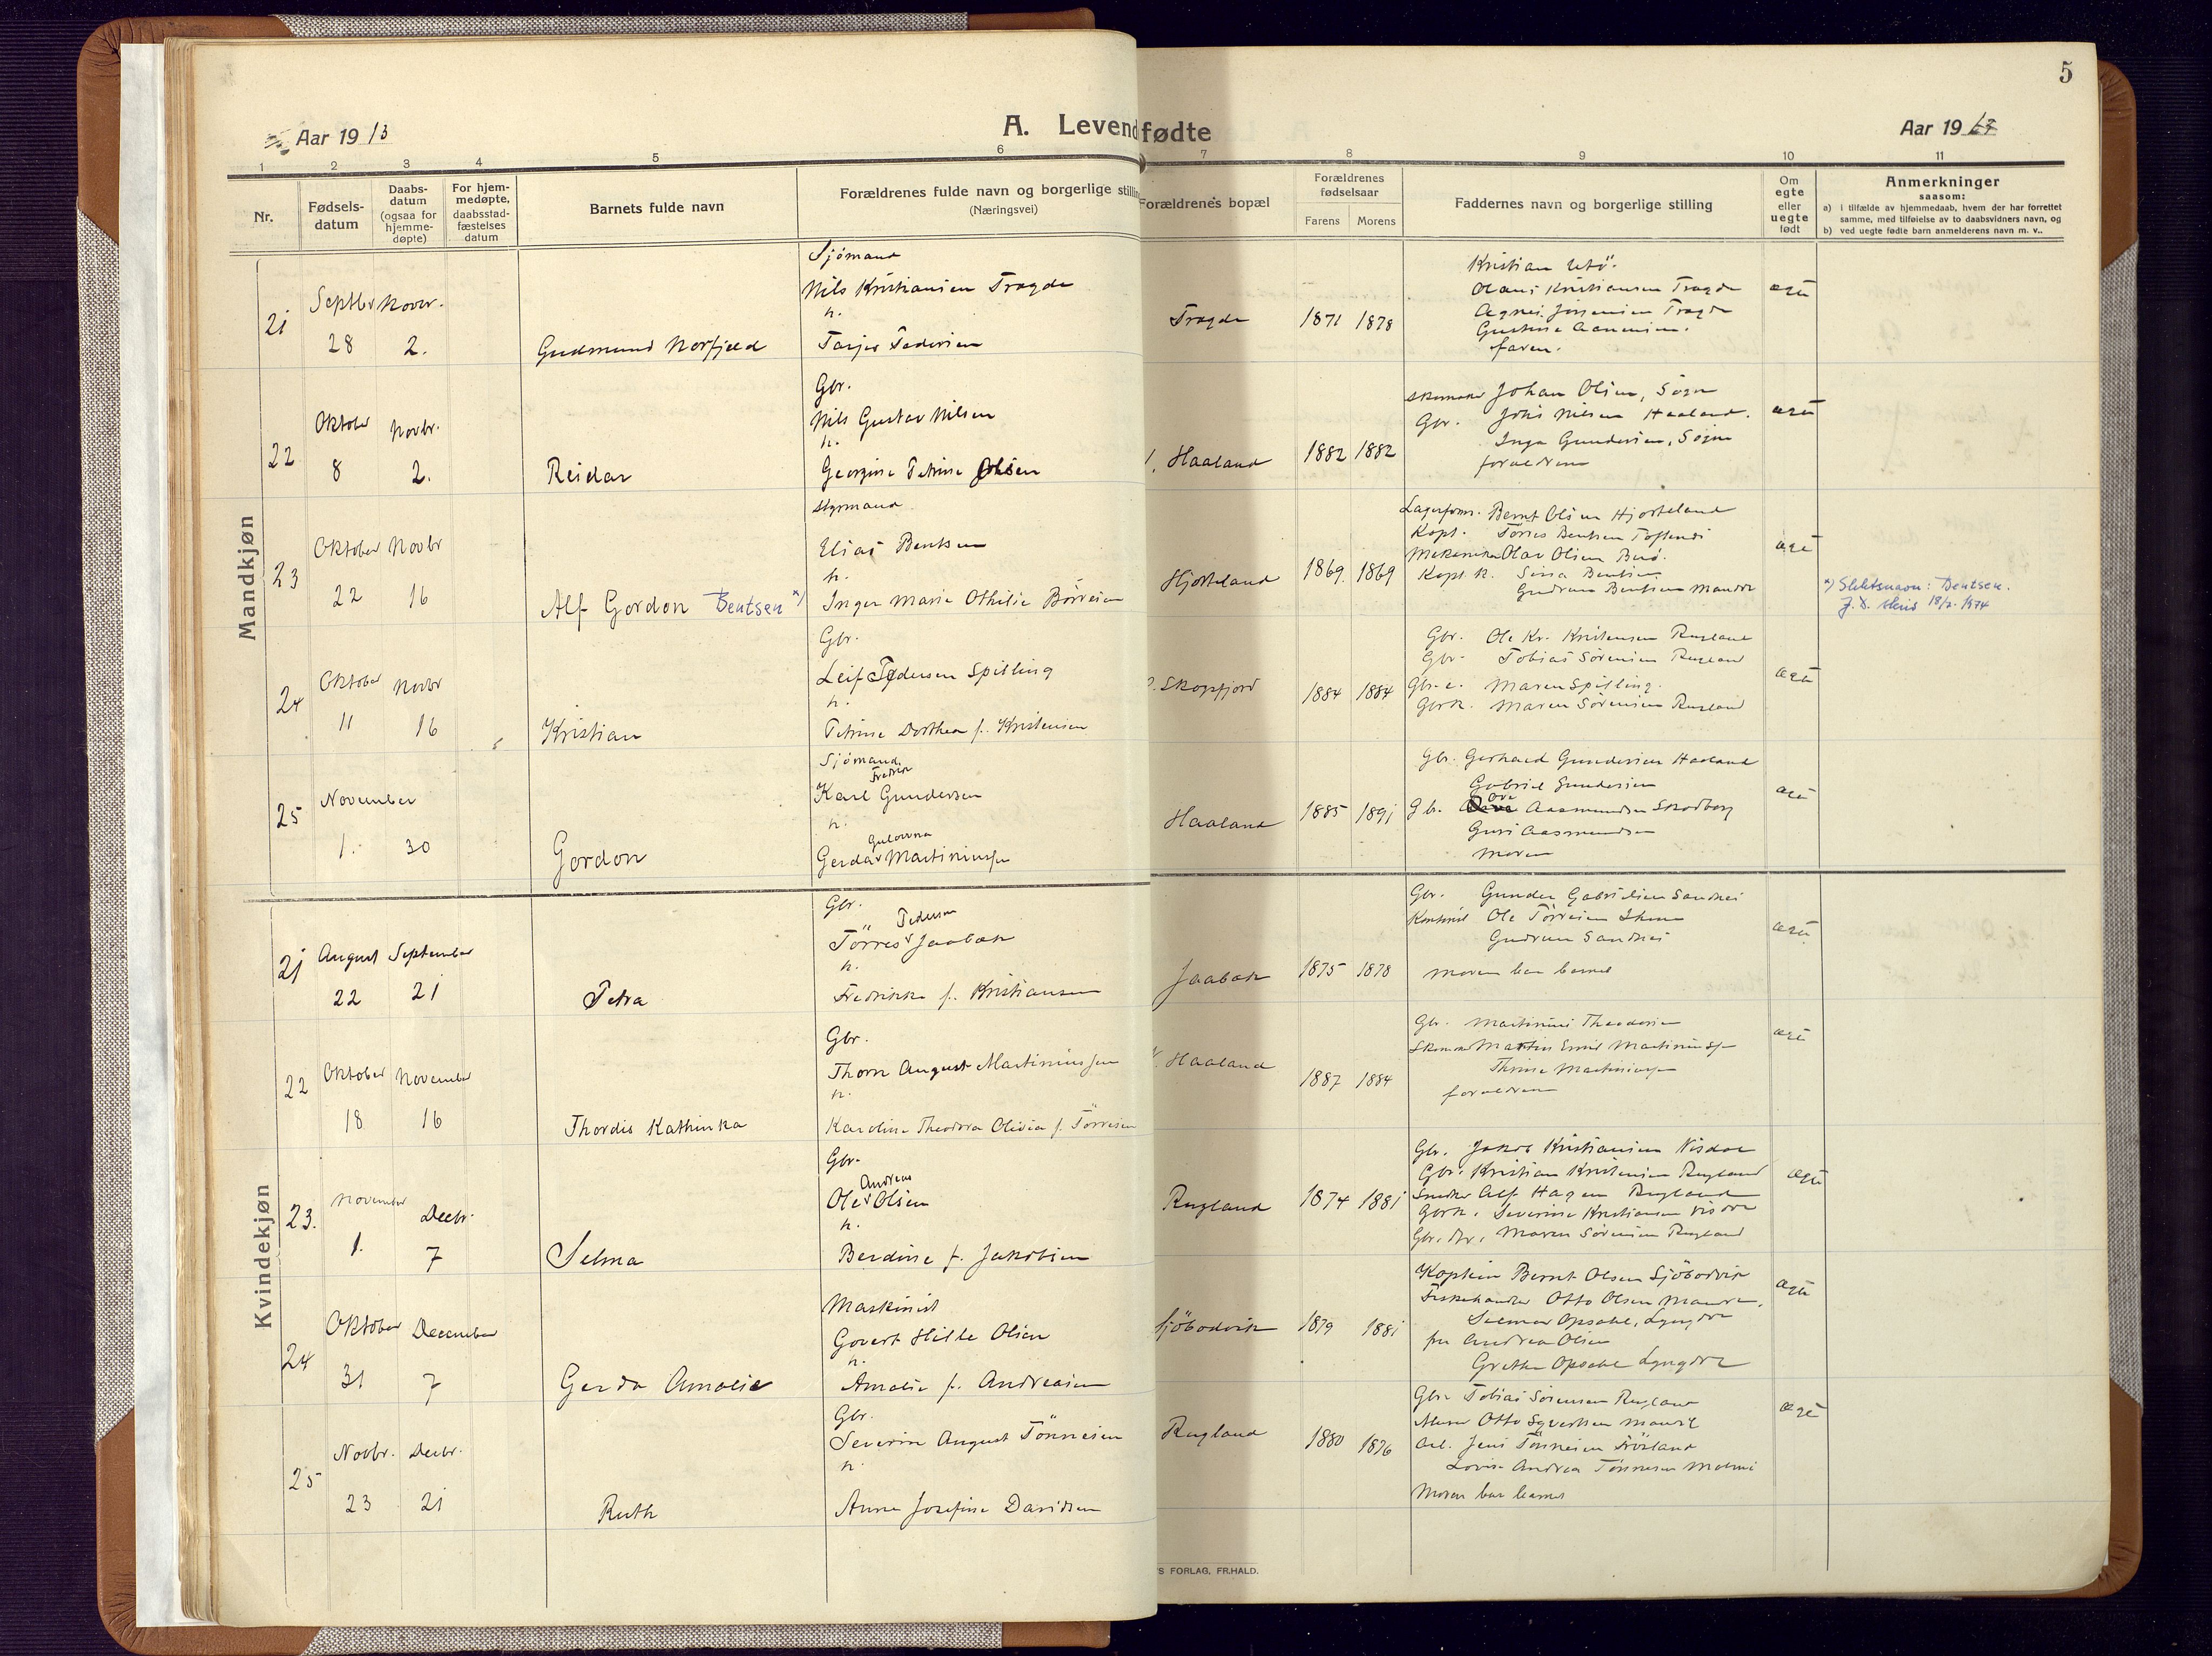 5
Aar 1913
A. Levendfødte
Aar 19
1 2 3 4 5 6 7 8 9 10 11
Nr.
Fødsels-
datum
Daabs-
datum
(ogsaa for
hjemme-
døpte)
For hjem-
medøpte,
daabsstad-
fæstelses
datum
Barnets fulde navn
Forældrenes fulde navn og borgerlige stilling
(Næringsvei)
Forældrenes bopæl
Forældrenes
fødselsaar
Farens Morens
Faddernes navn og borgerlige stilling
Om
egte
eller
uegte
født
Anmerkninger
saasom:
a) i tilfælde av hjemmedaab, hvem der har forrettet
samme, med tilføielse av to daabsvidners navn, og
b) ved uegte fødte barn anmelderens navn m. v..
Mandkjøn
21
Septbr Novbr.
28 2.
Gudmund Norfjeld
Sjömand
Nils Kristiansen Tregde
h.
Tregde
1871 1878
Kristian Utö.
Olaus Kristiansen Tregde
Agnes Jörgensen Tregde
faren.
ægte
22
Oktober Novbr.
8 2.
Reidar
Gbr.
Nils Gustav Nilsen
h.
Georgine Petrine Olsen
Haaland
1882 1882
Skomaker Johan Olsen, Søgne
Gbr. Johs Nilsen Haaland.
Inga Gundersen, Søgne
forældrene
ægte
23
Oktober Novbr
22 16
Alf Gordon Bentsen *)
Styrmand
Elias Bentsen
h.
Inger Marie Othilie Børresen
Hjorteland
1869. 1869
Lagerform. Bernt Olsen Hjorteland
Kapt. Törres Bentsen
Mekaniker Olav Olsen
Kapt. h. Bentsen
Gudrun Bentsen Mandal
ægte
*) Slektsnavn: Bentsen.
J.D. skriv 18/2-1974
24
Oktober Novbr
11 16
Kristian
Gbr.
Leif Pedersen Spilling
h.
Petrine Dorthea f. Kristensen
Skogsfjord
1884 1884
Gbr. Ole Kr. Kristensen Rugland
Gbr. Tobias Sörensen Rugland
Gbr.e. Maren Spilling.
Gbrk. Maren Sörensen Rugland
ægte
25
November
1. 30
Gordon
Sjömand
Fredrik
Karl Gundersen
h.
Gerda Martiniussen
Haaland
1885 1891
Gbr. Gerhard Gundersen Haaland
Gabriel Gundersen
Gb. Ove Aasmundsen Skodberg
Guri Aasmundsen
moren
ægte
Kvindekjøn
21
August September
22 21
Petra
Gbr.
Pedersen
Törres Jaabæk
h.
Fredrikke f. Kristiansen
Jaabæk
1875 1878
Gbr. Gunder Gabrielsen Sandnes
Ole Törresen
Gudrun Sandnes
moren bar barnet
ægte
22
Oktober November
18 16
Thordis Kathinka
Gbr.
Thorn August Martiniussen
h.
Karoline Theodora Olivia f. Törresen
Haaland
1887 1884
Gbr. Martinius Theodorsen
Skomaker Martin Emil Martiniussen
Thrine Martiniussen
forældrene
ægte
23.
November Decbr.
1. 7
Selma
Gbr.
Andreas
Ole Olsen
h.
Berdine f. Jakobsen
Rugland
1874 1881
Gbr. Jakob Kristiansen Visdal
Gbr. Kristian Kristensen Rugland
Snedker Alf Hagen Rugland
Gbrk. Severine Kristiansen Visdal
Gbr. dtr. Maren Sörensen Rugland
ægte
24
Oktober December
31 7
Gerda Amalie
Maskinist
Govert Hille Olsen
h.
Amalie f. Andreasen
Sjöbodvik
1879 1881
Kaptein Bernt Olsen Sjöbodvik
Fiskehandler Otto Olsen Mandal.
Opsahl, Lyngdal
fru Andrea Olsen
Grethe Opsahl Lyngdal
ægte
25
Novbr. Decbr.
23 21
Ruth
Gbr.
Severin August Tönnesen
h.
Anne Josefine Davidsen
Rugland
1880 1876
Gbr. Tobias Sörensen Rugland
Otto Syvertsen Mandal
Arb. Jens Tönnesen Frösland
Lovise Andrea Tönnesen
Moren bar barnet
ægte
S FORLAG, FR.HALD.